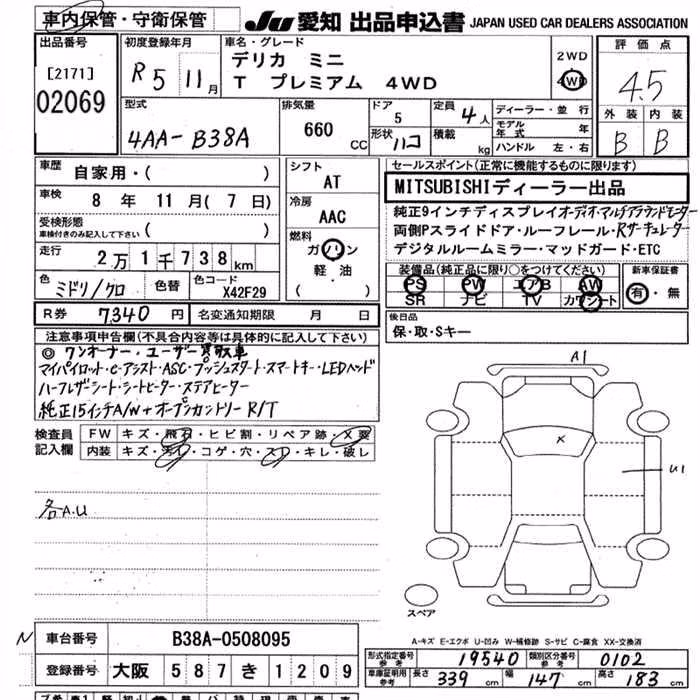 車内保管・守衛保管
JU 愛知 出品申込書 JAPAN USED CAR DEALERS ASSOCIATION
出品番号 [2171] 02069
初度登録年月 R5 11月
車名・グレード デリカ ミニ
T プレミアム 4WD
2WD
4WD
評価点 4.5
外装 内装
B B
型式 4AA-B38A
排気量 660 CC
ドア 5
形状 ハコ
定員 4人
積載 kg
ディーラー・並行
モデル年式 年
ハンドル 左・右
車歴 自家用・( )
車検 8年 11月(7日)
受検形態 車検付きのみ記入して下さい ( )
走行 2万1千738km
色 ミドリ/クロ 色替 色コード X42F29
シフト AT
冷房 AAC
燃料 ガソリン
軽・油
( )
セールスポイント(正常に機能するものに限ります)
MITSUBISHIディーラー出品
純正9インチディスプレイオーディオ・マルチアラウンドモニター
両側Pスライドドア・ルーフレール・Rサーキュレーター
デジタルルームミラー・マッドガード・ETC
装備品(純正品に限り○をつけてください)
PS PW エアB AW
SR ナビ TV カワシート
新車保証書
有・無
R券 7340円 名変通知期限 月 日
後日品
保・取・Sキー
注意事項申告欄(不具合内容等は具体的に記入して下さい)
◎ワンオーナー・ユーザー買取車
マイパイロット・e-アシスト・ASC・プッシュスタート・スマートキー・LEDヘッド
ハーフレザーシート・シートヒーター・ステアヒーター
純正15インチA/W+オープンカントリーR/T
検査員記入欄
FW キズ・飛石・ヒビ割・リペア跡・X要
内装 キズ・汚れ・コゲ・穴・スレ・キレ・破レ
各A.U
A1
X
U1
スペア
A-キズ E-エクボ U-凹み W-補修跡 S-サビ C-腐食 XX-交換済
N 車台番号 B38A-0508095
登録番号 大阪 587 き 1209
形式指定番号 参考 19540 類別区分番号 参考 0102
車庫証明用 参考 長さ 339cm 幅 147cm 高さ 183cm